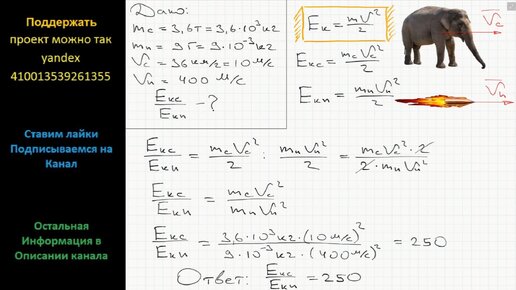 Поддержать
проект можно так
yandex
410013539261355
Ставим лайки
Подписываемся на
Канал
Остальная
Информация в
Описании канала
Дано:
mс = 3,6т = 3,6·10³кг
mп = 9г = 9·10⁻³кг
Vс = 36км/ч = 10м/с
Vп = 400 м/с
Eкс/Eкп - ?
Eк = mV²/2
Eкс = mсVс²/2
Eкп = mпVп²/2
Vс
Vп
Eкс/Eкп = mсVс²/2 : mпVп²/2 = mсVс²·2/2·mпVп²
Eкс/Eкп = mсVс²/mпVп²
Eкс/Eкп = 3,6·10³кг·(10м/с)²/9·10⁻³кг·(400м/с)² = 250
Ответ: Eкс/Eкп = 250